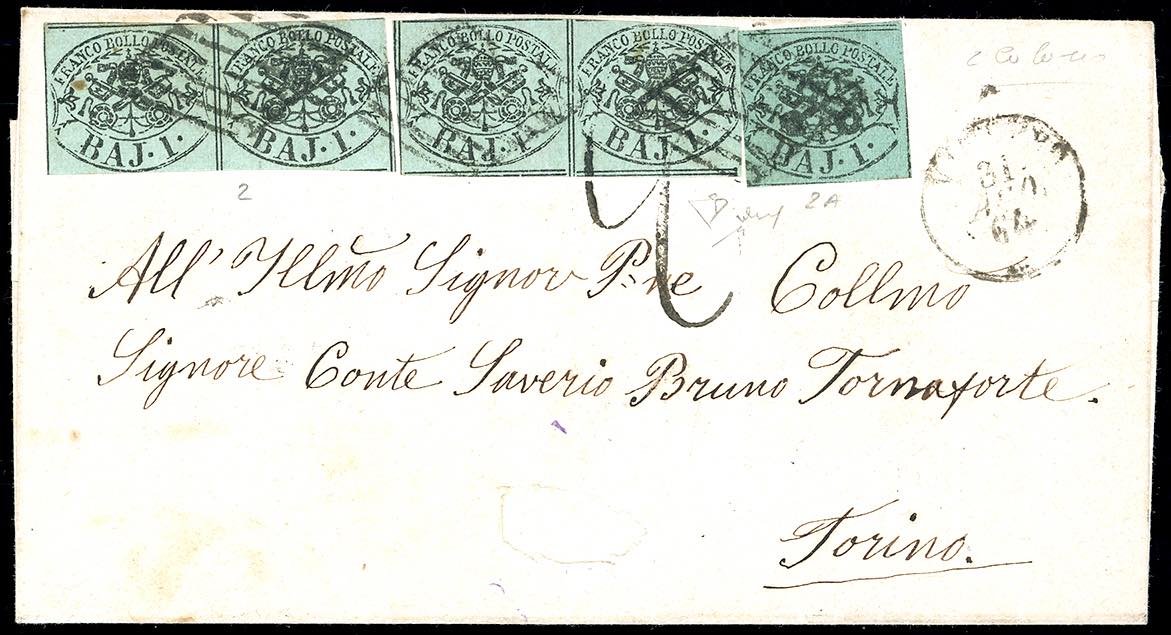 FRANCO BOLLO POSTALE
BAJ. 1.
FRANCO BOLLO POSTALE
BAJ. 1.
FRANCO BOLLO POSTALE
BAJ. 1.
FRANCO BOLLO POSTALE
BAJ. 1.
FRANCO BOLLO POSTALE
BAJ. 1.
31
64
2
2A
All' Illmo Signor P.ne Collmo
Signore Conte Saverio Bruno Tornaforte.
Torino.